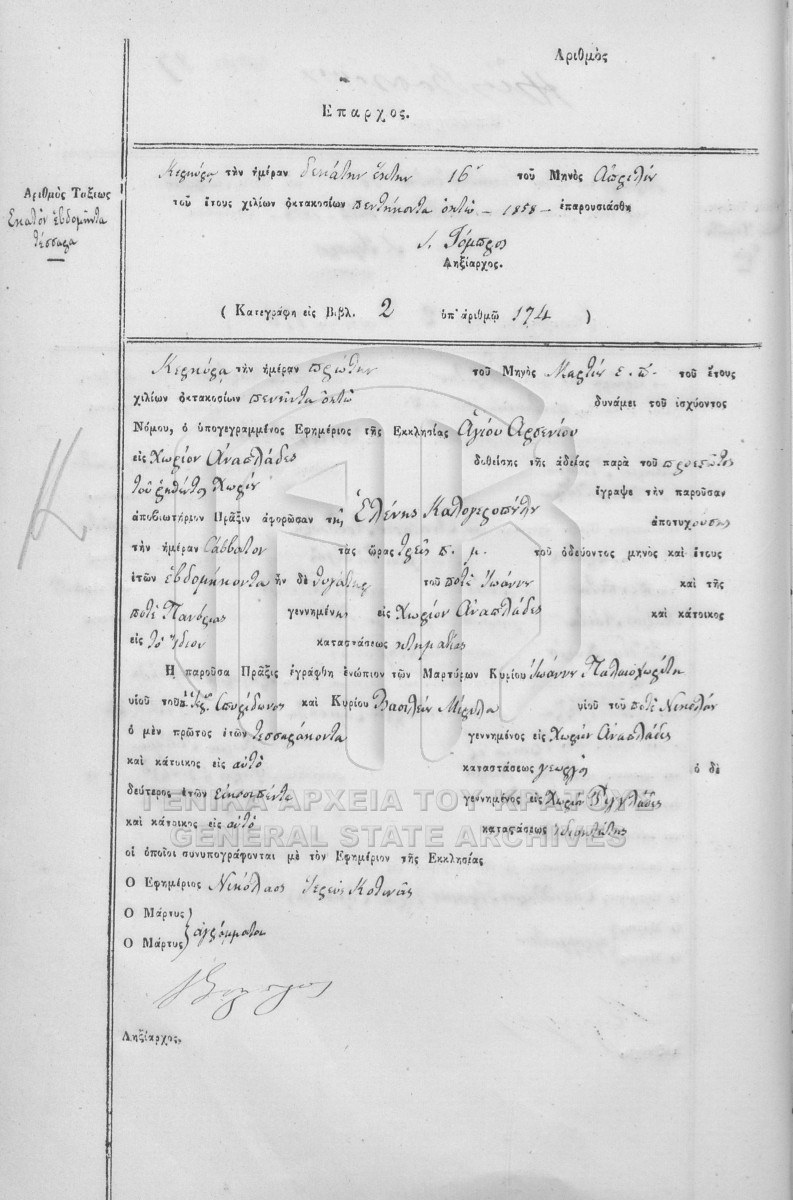 Αριθμὸς
Επαρχος.
Αριθμὸς Τάξεως
Εκατὸν ἑβδομῆντα
τέσσαρα
Κερκύρᾳ τὴν ἡμέραν δεκάτην ἕκτην 16 τοῦ Μηνὸς Απριλίου
τοῦ ἔτους χιλίων ὀκτακοσίων πεντήκοντα ὀκτὼ - 1858 - ἐπαρουσιάσθη
Γόμπρος
Ληξίαρχος.
( Κατεγράφη εἰς Βιβλ. 2 ὑπ' ἀριθμῷ 174 )
Κερκύρᾳ τὴν ἡμέραν πρώτην τοῦ Μηνὸς Μαρτίου ε. π. τοῦ ἔτους
χιλίων ὀκτακοσίων πενῆντα ὀκτὼ δυνάμει τοῦ ἰσχύοντος
Νόμου, ὁ ὑπογεγραμμένος Εφημέριος τῆς Εκκλησίας Ἁγίου Αρσενίου
εἰς Χωρίον Αναπλάδες δοθείσης τῆς ἀδείας παρὰ τοῦ προεστῶτος
τοῦ ῥηθέντος Χωρίου ἔγραψε τὴν παροῦσαν
ἀποβιωτήριον Πρᾶξιν ἀφορῶσαν τῆς Ἑλένης Καλογεροπούλου ἀποτυχούσης
τὴν ἡμέραν Σάββατον τὰς ὥρας τρεῖς π. μ. τοῦ ὁδεύοντος μηνὸς καὶ ἔτους
ἐτῶν ἑβδομήκοντα ἦν δὲ θυγάτηρ τοῦ ποτὲ Ἰωάννου καὶ τῆς
ποτὲ Πανώριας γεννημένης εἰς Χωρίον Αναπλάδες καὶ κάτοικος
εἰς τὸ ἴδιον καταστάσεως κτηματίας
Η παροῦσα Πρᾶξις ἐγράφθη ἐνώπιον τῶν Μαρτύρων Κυρίου Ἰωάννου Παλαιοχωρίτη
υἱοῦ τοῦ Σπυρίδωνος καὶ Κυρίου Βασιλείου υἱοῦ τοῦ ποτὲ Νικολάου
ὁ μὲν πρῶτος ἐτῶν τεσσαράκοντα γεννημένος εἰς Χωρίον Αναπλάδες
καὶ κάτοικος εἰς αὐτὸ καταστάσεως γεωργὸς ὁ δὲ
δεύτερος ἐτῶν εἰκοσιπέντε γεννημένος εἰς Χωρίον Ριγγλάδες
καὶ κάτοικος εἰς αὐτὸ καταστάσεως
οἱ ὁποῖοι συνυπογράφονται μὲ τὸν Εφημέριον τῆς Εκκλησίας
Ο Εφημέριος Νικόλαος Ἱερεὺς
Ο Μάρτυς
Ο Μάρτυς } ἀγράμματοι
Ληξίαρχος,
ΓΕΝΙΚΑ ΑΡΧΕΙΑ ΤΟΥ ΚΡΑΤΟΥΣ
GENERAL STATE ARCHIVES